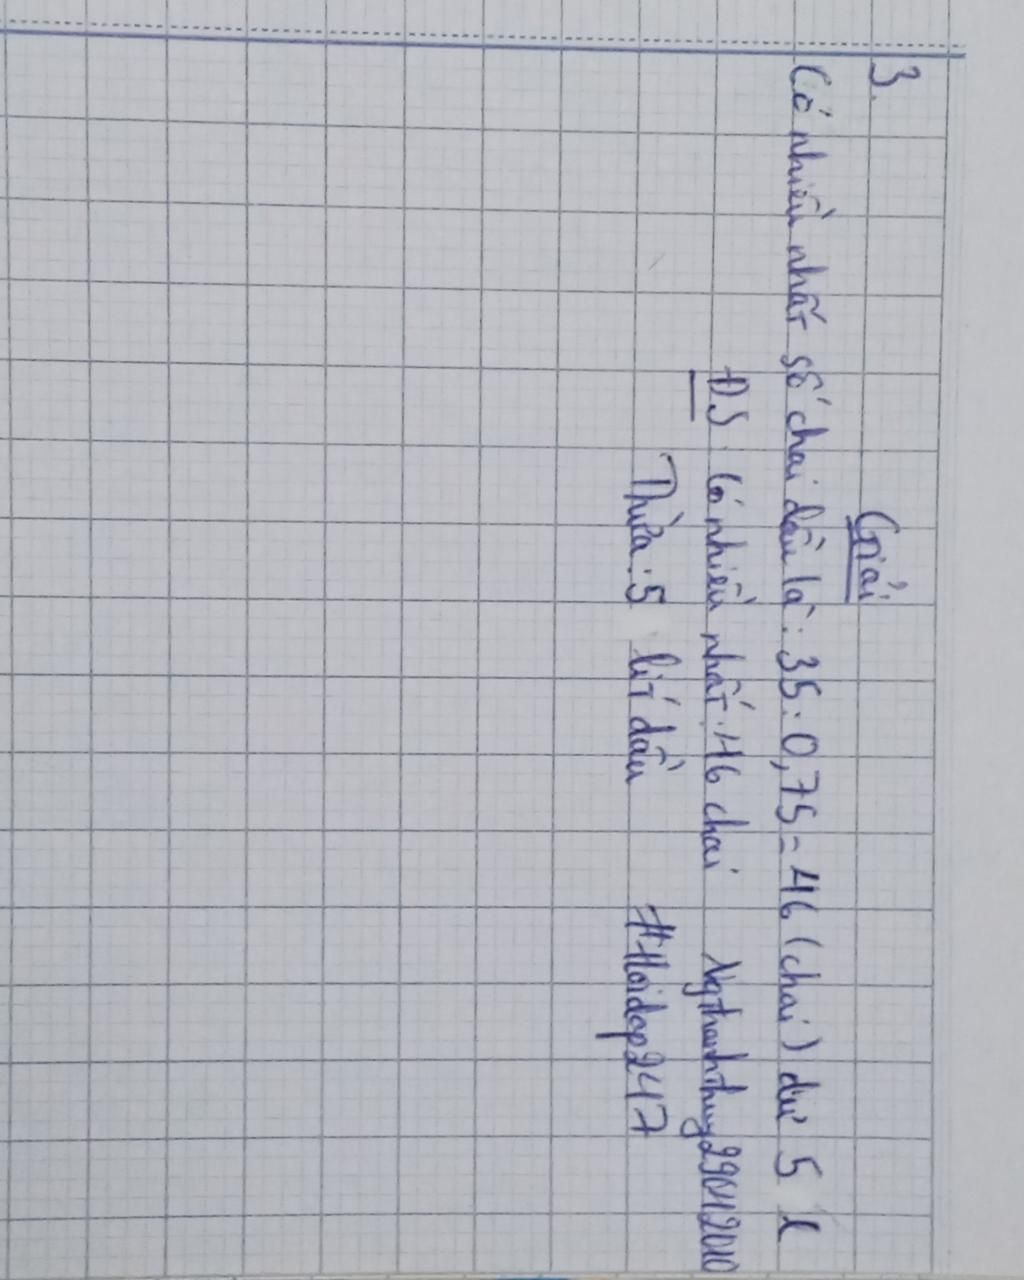 3.
Giải
Có nhiều nhất số chai dầu là: 35:0,75=46 (chai) dư 5 l
ĐS: Có nhiều nhất: 46 chai Ngthanhthuy29012010
Thừa: 5 lít dầu #Hoidap247